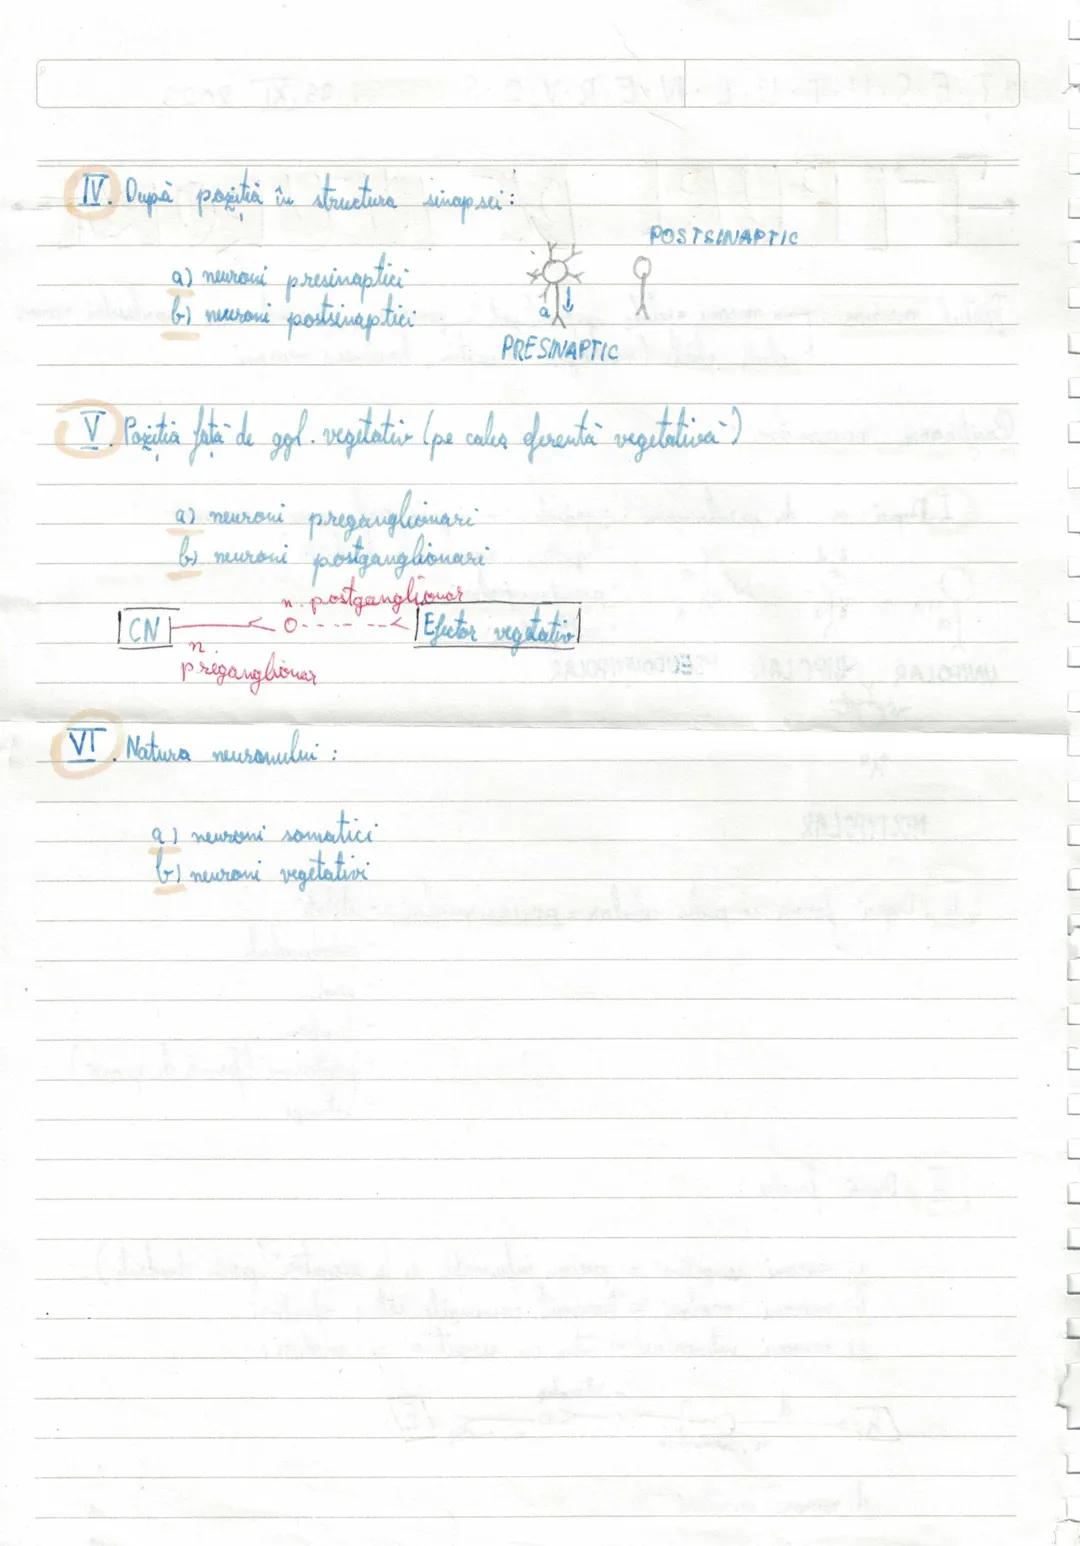 IV. După poziția în structura sinapsei:
POSTSINAPTIC
a) neuroni presinaptici
b) neuroni postsinaptici
a
PRESINAPTIC
V. Poziția față de ggl. vegetativ (pe calea eferentă vegetativă)
a) neuroni preganglionari
b) neuroni postganglionari
n. postganglionar
CN
Efector vegetativ
n.
preganglionar
VI. Natura neuronului:
a) neuroni somatici
b) neuroni vegetativi